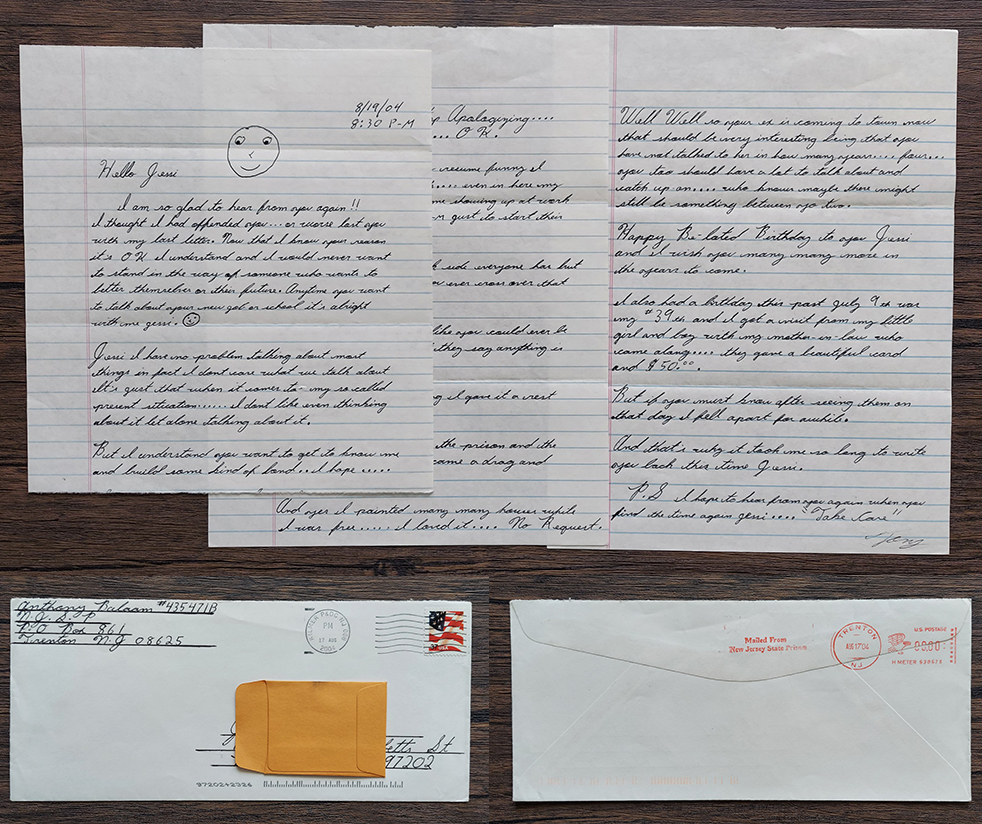 8/19/04
8:30 P-M
Hello Jessi
I am so glad to hear from you again!!
I thought I had offended you... or worse lost you
with my last letter. Now that I know your reason
it's OK I understand and I would never want
to stand in the way of someone who wants to
better themselves or their future. Anytime you want
to talk about your new job or school it's alright
with me jessi.
Jessi I have no problem talking about most
things in fact I dont care what we talk about
It's just that when it comes to my so called
present situation...... I dont like even thinking
about it let alone talking about it.
But I understand you want to get to know me
and build some kind of bond.. I hope .....
Apologizing....
O K.
resume funny I
.... even in here my
me showing up at work
just to start their
side everyone has but
ever cross over that
like you could ever be
they say anything is
I gave it a rest
the prison and the
came a drag and
And yes I painted many many houses while
I was free..... I loved it.... No Request.
Well Well so your ex is coming to town now
that should be very interesting being that you
have not talked to her in how many years.... four...
you too should have a lot to talk about and
catch up on.... who knows maybe there might
still be something between yo two.
Happy Be-lated Birthday to you Jessi
and I wish you many many more in
the years to come.
I also had a birthday this past July 9th was
my #39th and I got a visit from my little
girl and boy with my mother-in-law who
came along.... they gave a beautiful card
and $50.00.
But if you must know after seeing them on
that day I fell apart for awhile.
And that's why it took me so long to write
you back this time Jessi.
P.S I hope to hear from you again when you
find the time again jessi.... "Take Care"
Tony
Anthony Balaam #435471B
N.J.S.P
P.O Box 861
Trenton N.J 08625
PM
AUG
2004
37 USA
St
97202
9720242326
Mailed From
New Jersey State Prison
TRENTON
AUG 17'04
NJ
U.S. POSTAGE
00.00
H METER